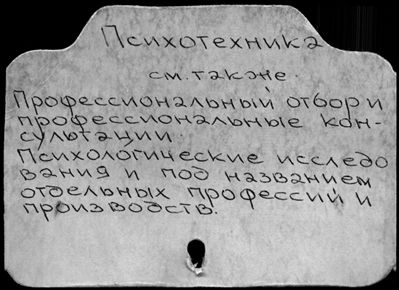 Психотехника
см. также.
Профессиональный отбор и
профессиональные кон-
сультации.
Психологические исследо
вания и под названием
отдельных профессий и
производств.